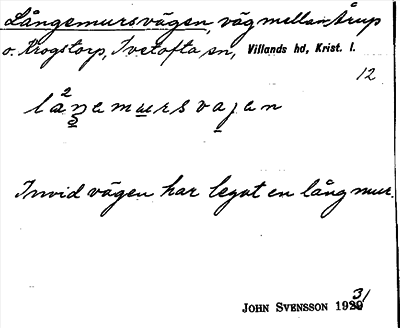 Långemursvägen, väg mellan Årup
o. Krogstorp, Ivetofta sn, Villands hd, Krist. l.
12
Invid vägen har legat en lång mur.
JOHN SVENSSON 1931